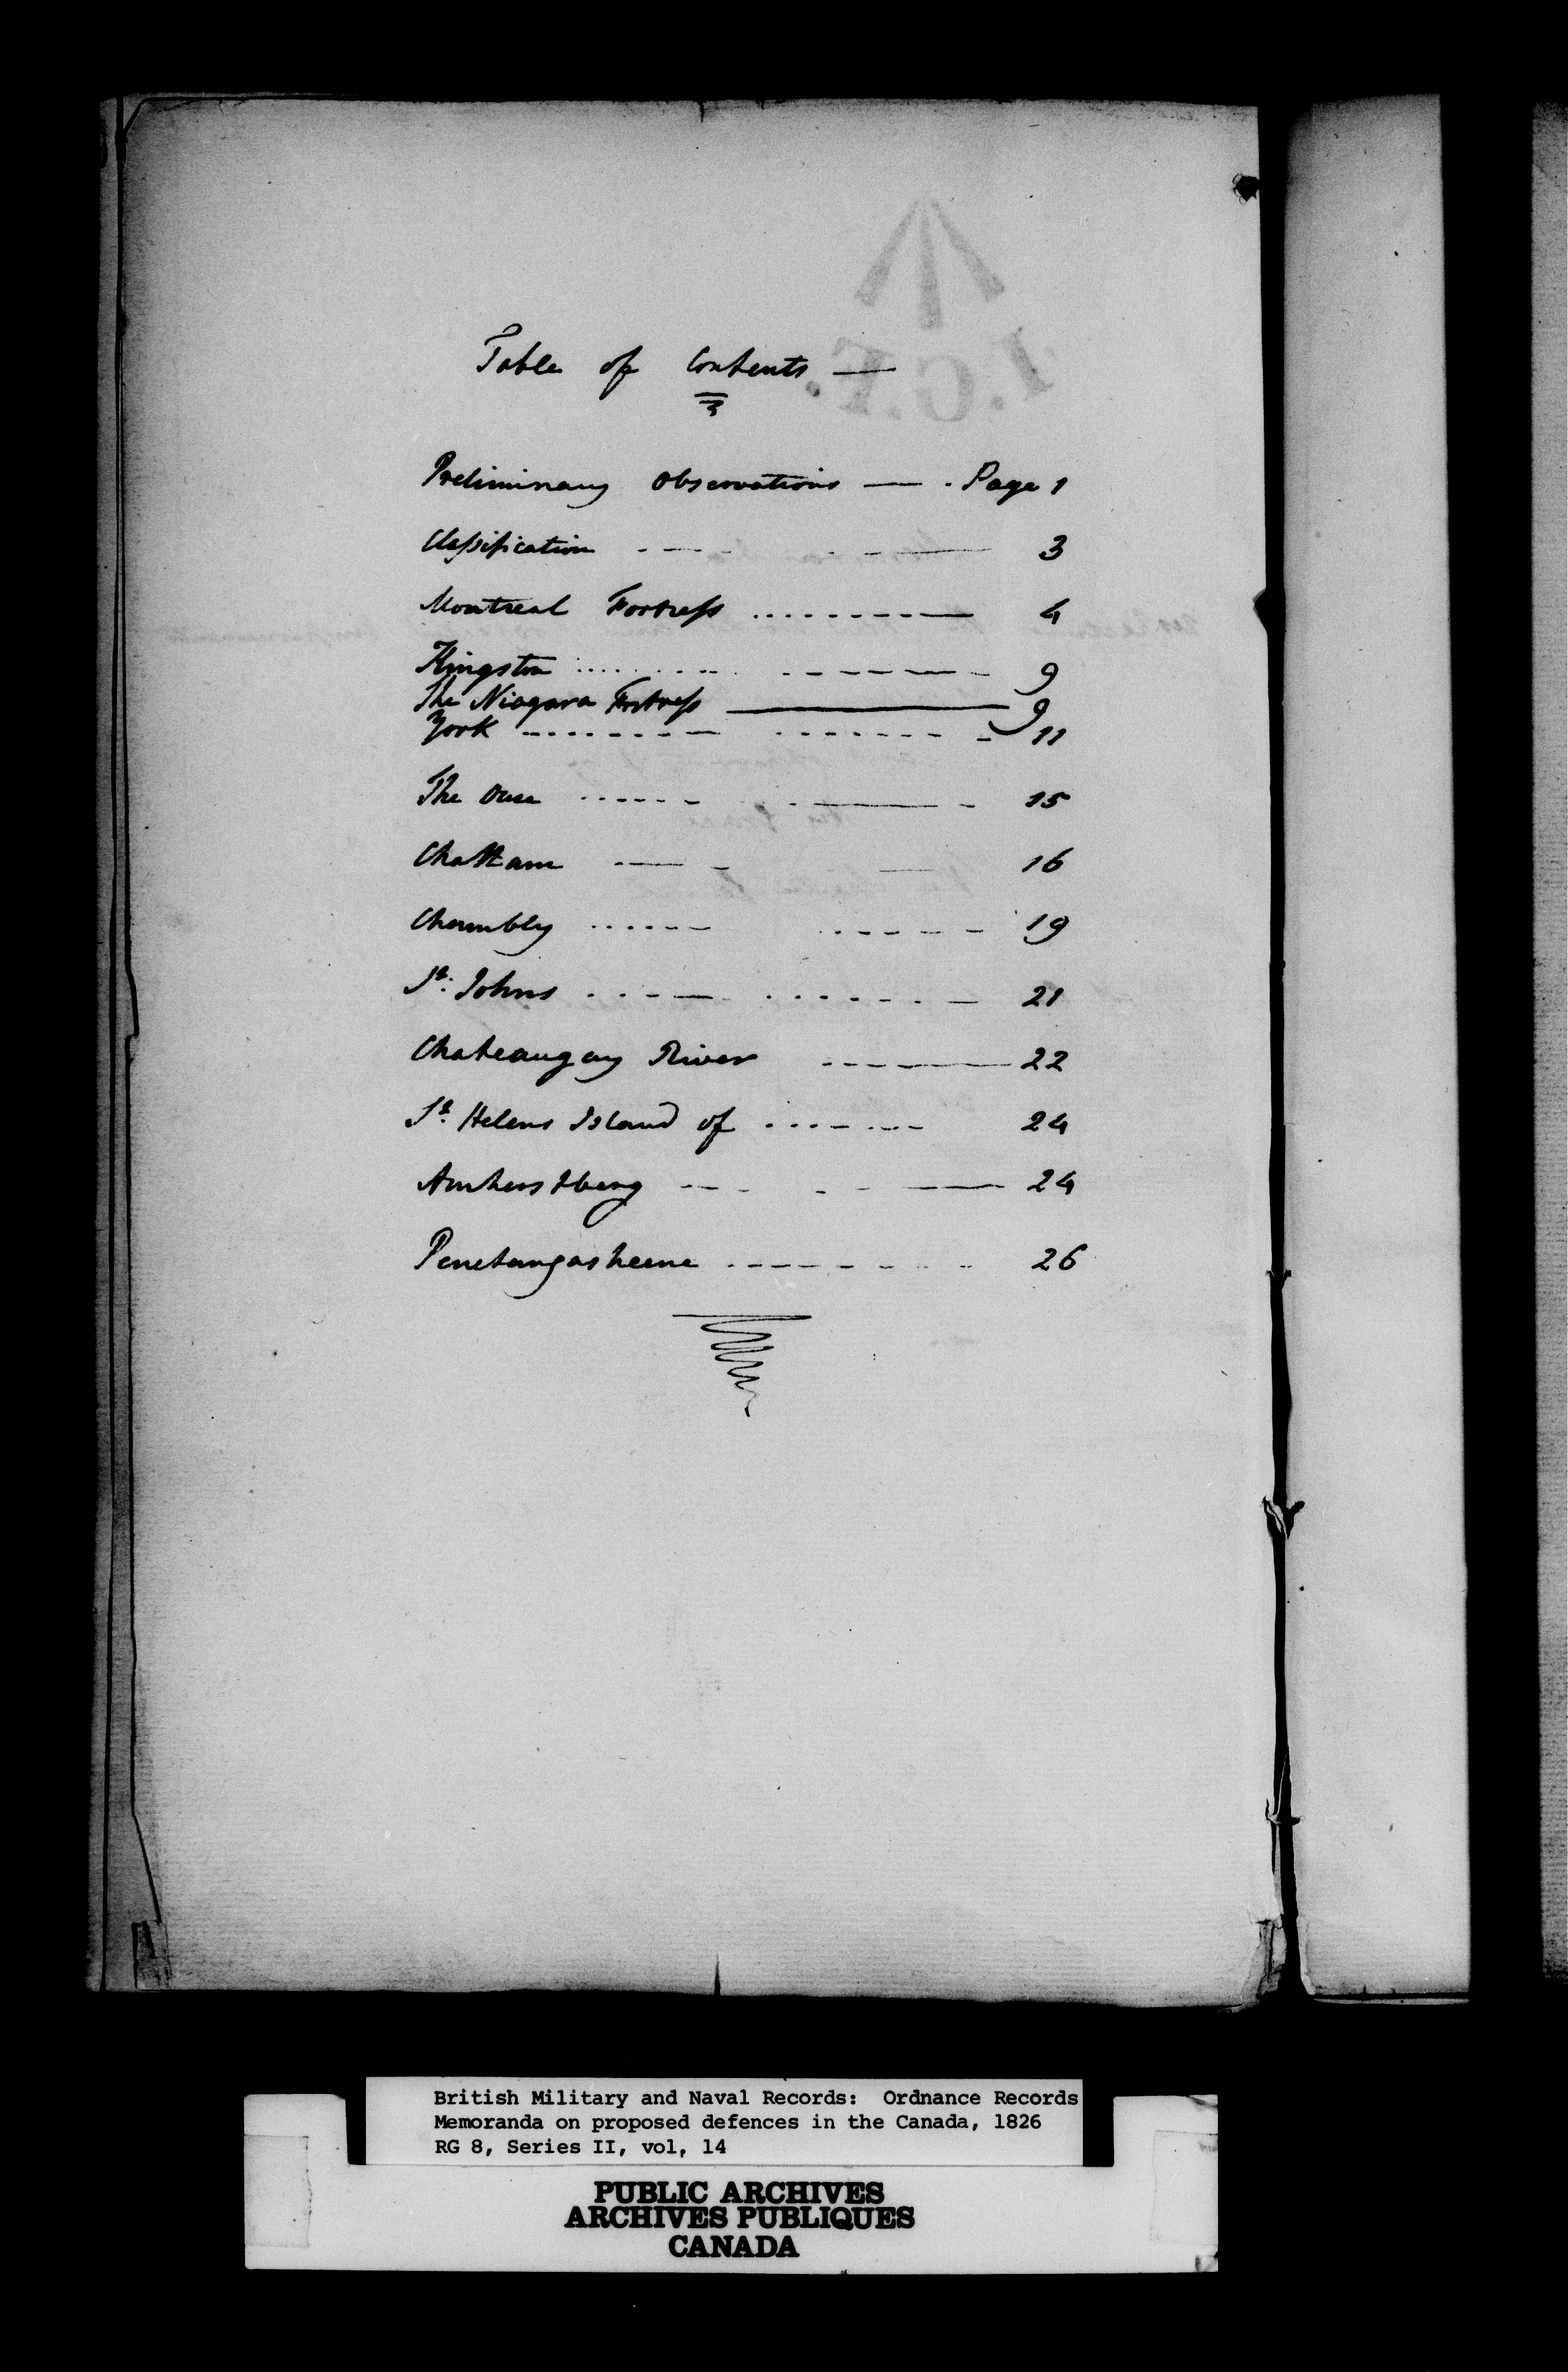 Table of Contents —
Preliminary Observations — . Page 1
Classification 3
Montreal Fortress 4
Kingston 9
The Niagara Fortress 9
York 11
The Ouse 15
Chattam 16
Chambly 19
St. Johns 21
Chateaugay River 22
St. Helens Island of 24
Amherstberg 24
Penetangasheene 26
I.G.F.
British Military and Naval Records: Ordnance Records
Memoranda on proposed defences in the Canada, 1826
RG 8, Series II, vol, 14
PUBLIC ARCHIVES
ARCHIVES PUBLIQUES
CANADA